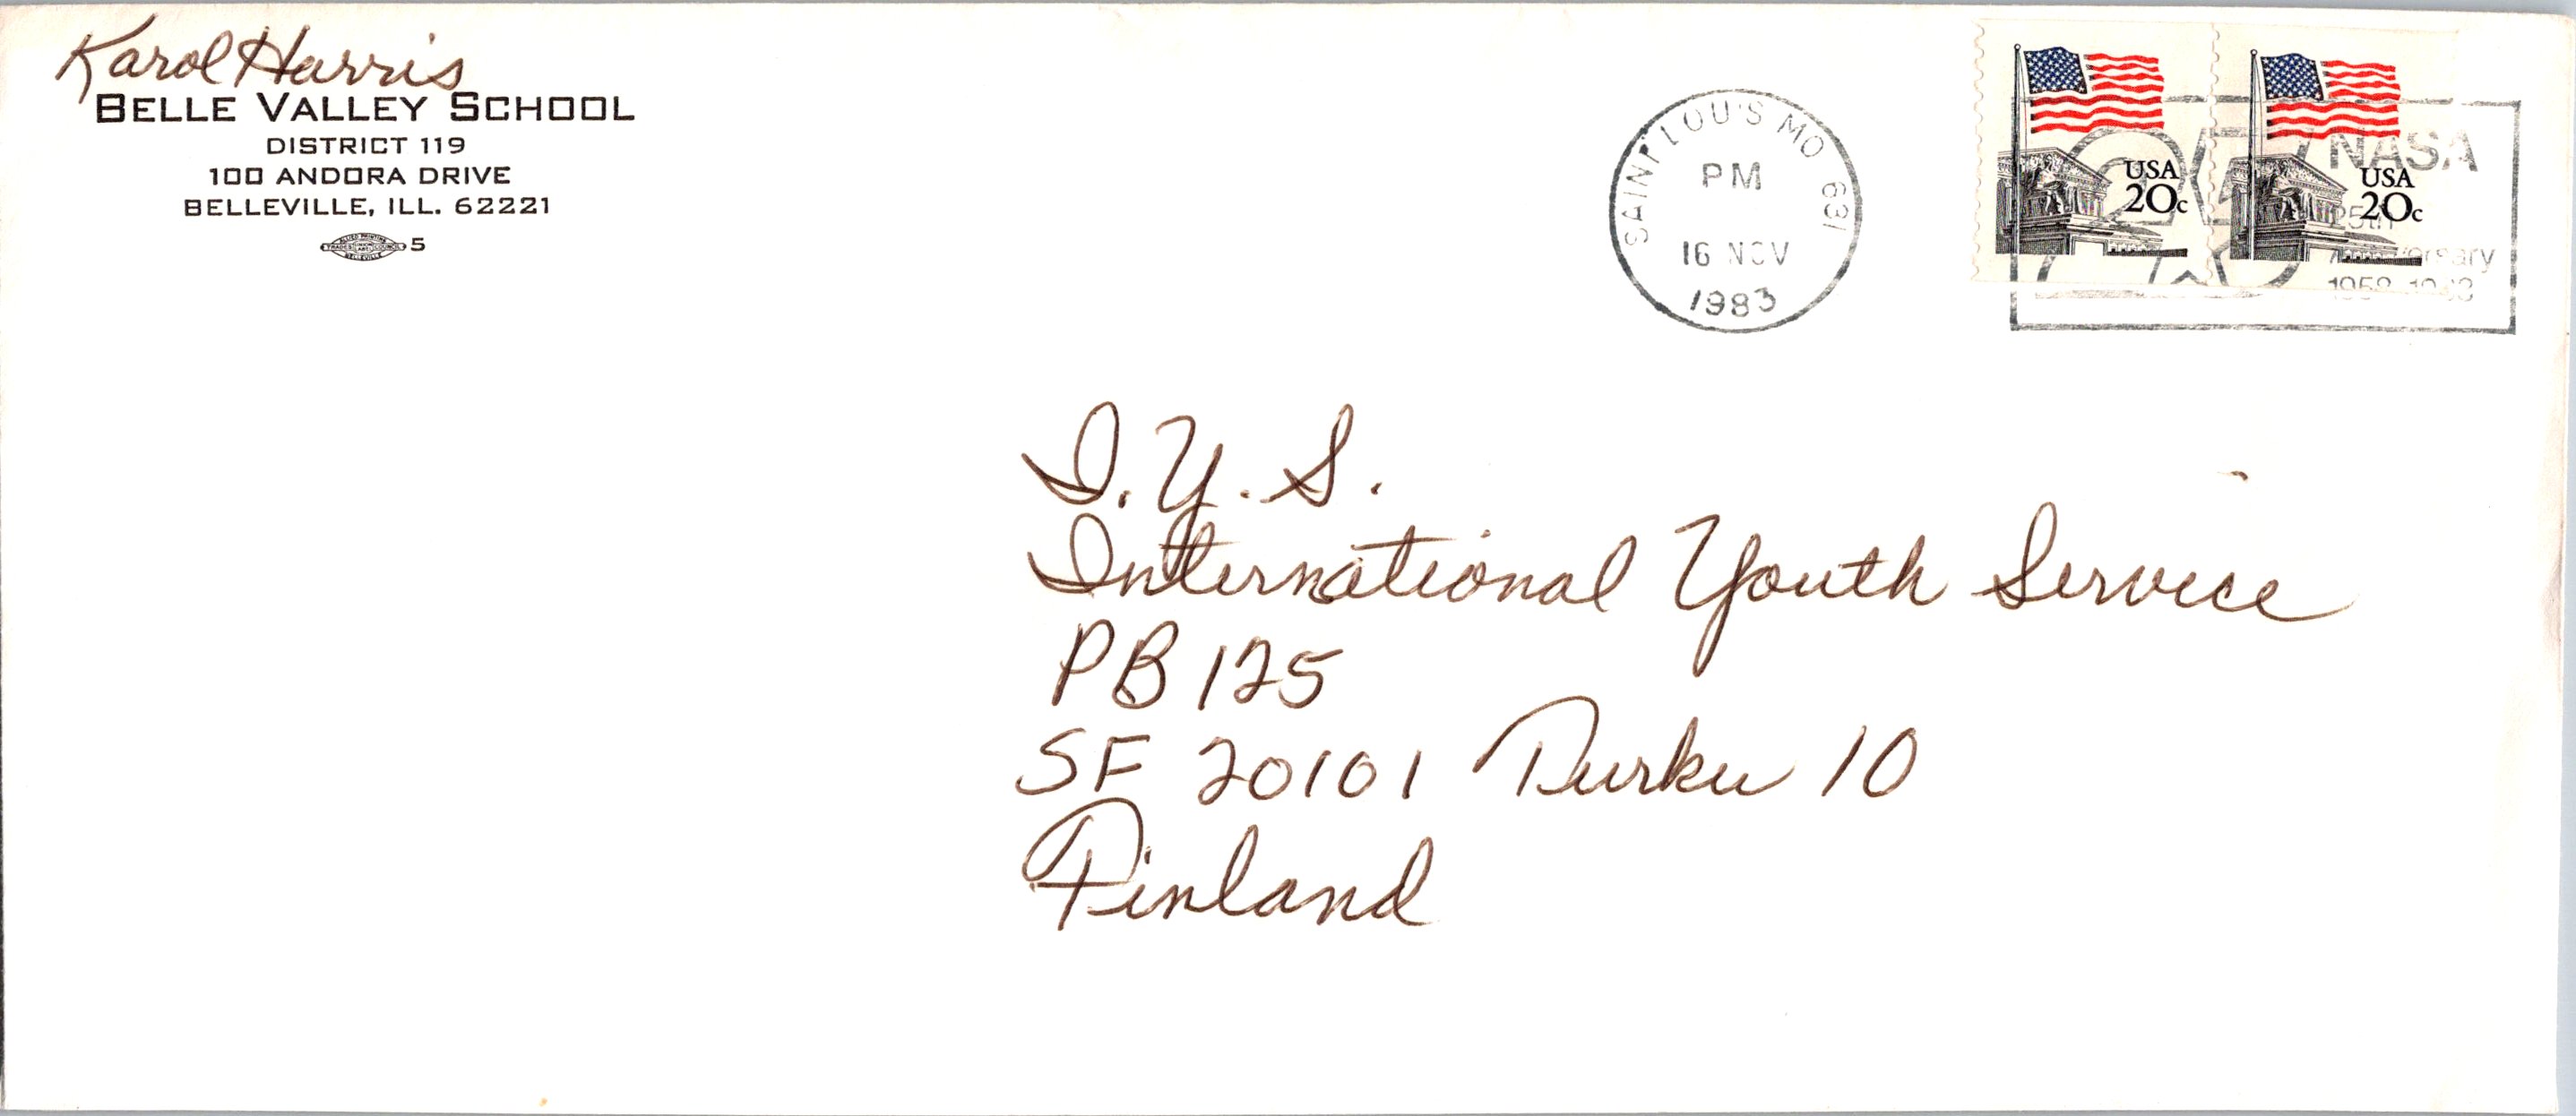 Karol Harris
BELLE VALLEY SCHOOL
DISTRICT 119
100 ANDORA DRIVE
BELLEVILLE, ILL. 62221
ALLIED PRINTING
TRADES UNION LABEL COUNCIL 5
BELLEVILLE
SAINT LOUIS MO 631
PM
16 NOV
1983
USA
20c
USA
20c
NASA
25th
Anniversary
1958-1983
I.Y.S.
International Youth Service
PB 125
SF 20101 Turku 10
Finland